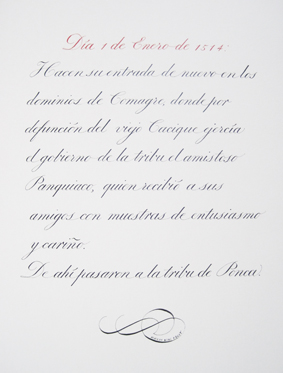 Día 1 de Enero de 1514:
Hacen su entrada de nuevo en los
dominios de Comagre, donde por
defunción del viejo Cacique ejercía
el gobierno de la tribu el amistoso
Panquiaco, quien recibió a sus
amigos con muestras de entusiasmo
y cariño.
De ahí pasaron a la tribu de Ponca.